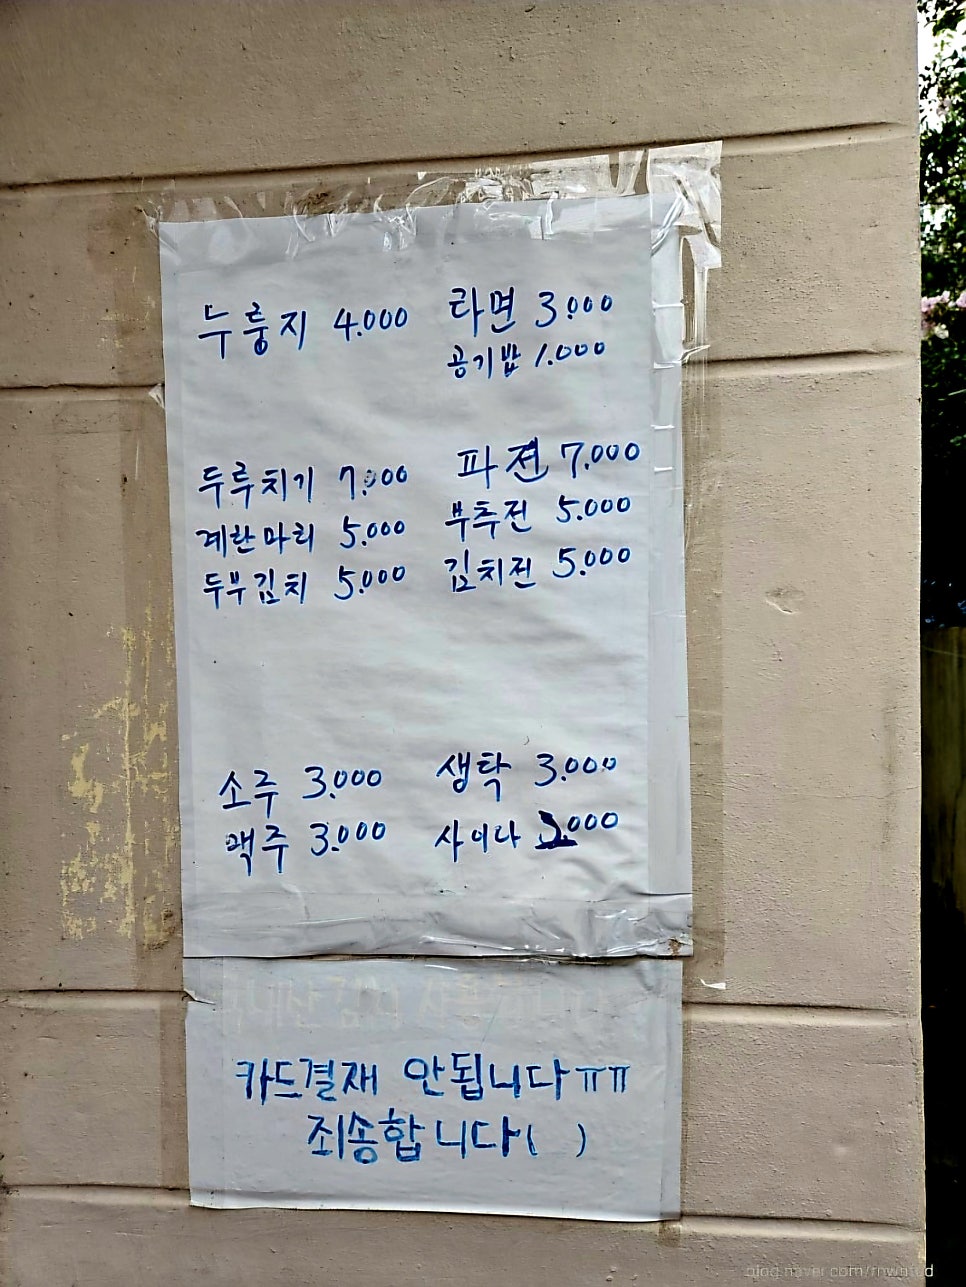 누룽지 4.000 라면 3.000
공기밥 1.000
두루치기 7.000 파전 7.000
계란마리 5.000 부추전 5.000
두부김치 5.000 김치전 5.000
소주 3.000 생탁 3.000
맥주 3.000 사이다 .000
김치 사용합니다
카드결재 안됩니다ㅠㅠ
죄송합니다( )
blog.naver.com/